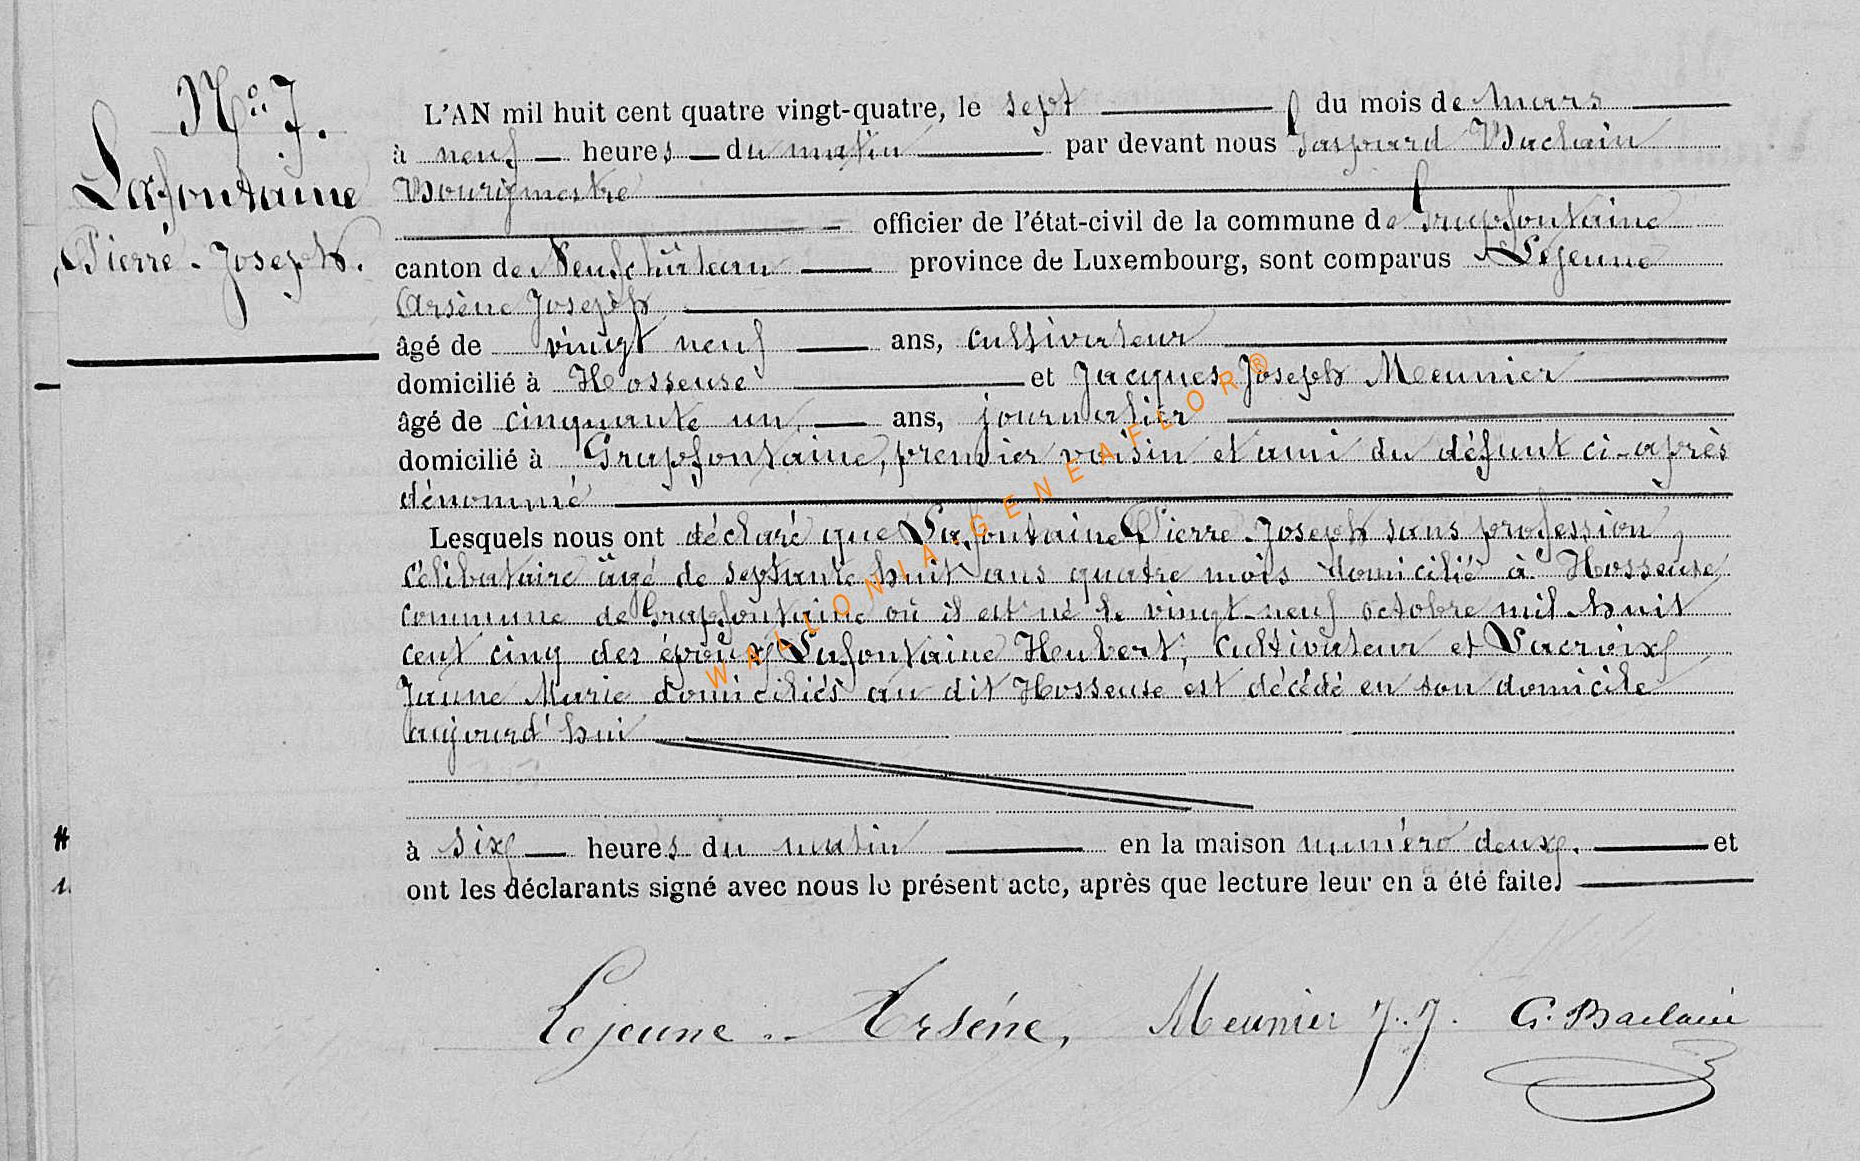 N° 7.
Lafontaine
Pierre-Joseph.
L'AN mil huit cent quatre vingt-quatre, le sept du mois de mars
à neuf heures du matin par devant nous Gaspard Baclain
Bourgmestre
officier de l'état-civil de la commune de Grapfontaine
canton de Neufchâteau province de Luxembourg, sont comparus Lejeune
Arsène Joseph
âgé de vingt neuf ans, cultivateur
domicilié à Hosseuse et Jacques Joseph Meunier
âgé de cinquante un ans, journalier
domicilié à Grapfontaine, premier voisin et ami du défunt ci-après
dénommé
Lesquels nous ont déclaré que Lafontaine Pierre-Joseph sans profession,
célibataire âgé de septante huit ans quatre mois domicilié à Hosseuse
commune de Grapfontaine où il est né le vingt-neuf octobre mil huit
cent cinq des époux Lafontaine Heubert, cultivateur et Lacroix
Jeanne Marie domiciliés au dit Hosseuse est décédé en son domicile
aujourd'hui
à six heures du matin en la maison numéro deux. et
ont les déclarants signé avec nous le présent acte, après que lecture leur en a été faite.
Lejeune -- Arséne, Meunier J. J. G. Baclain
WALLONIA-GENEAFLOR®